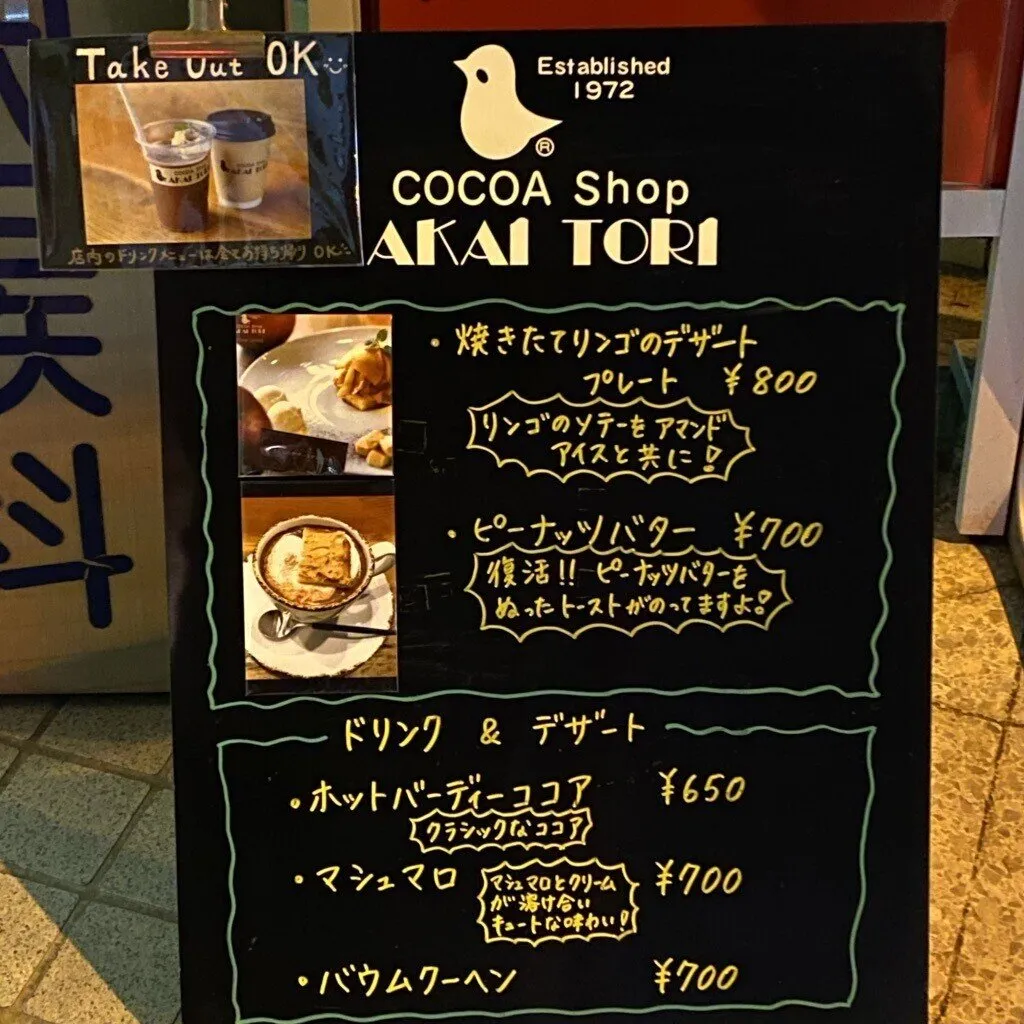 Take Out OK
COCOA SHOP
AKAI TORI
店内のドリンクメニューは全てお持ち帰りOK
Established
1972
®
COCOA Shop
AKAI TORI
AKAI TORI
・焼きたてリンゴのデザート
プレート ¥800
リンゴのソテーをアマンド
アイスと共に!
・ピーナッツバター ¥700
復活!! ピーナッツバターを
ぬったトーストがのってますよ!
ドリンク & デザート
・ホットバーディーココア ¥650
クラシックなココア
・マシュマロ ¥700
マシュマロとクリーム
が溶け合い
キュートな味わい!
・バウムクーヘン ¥700
料